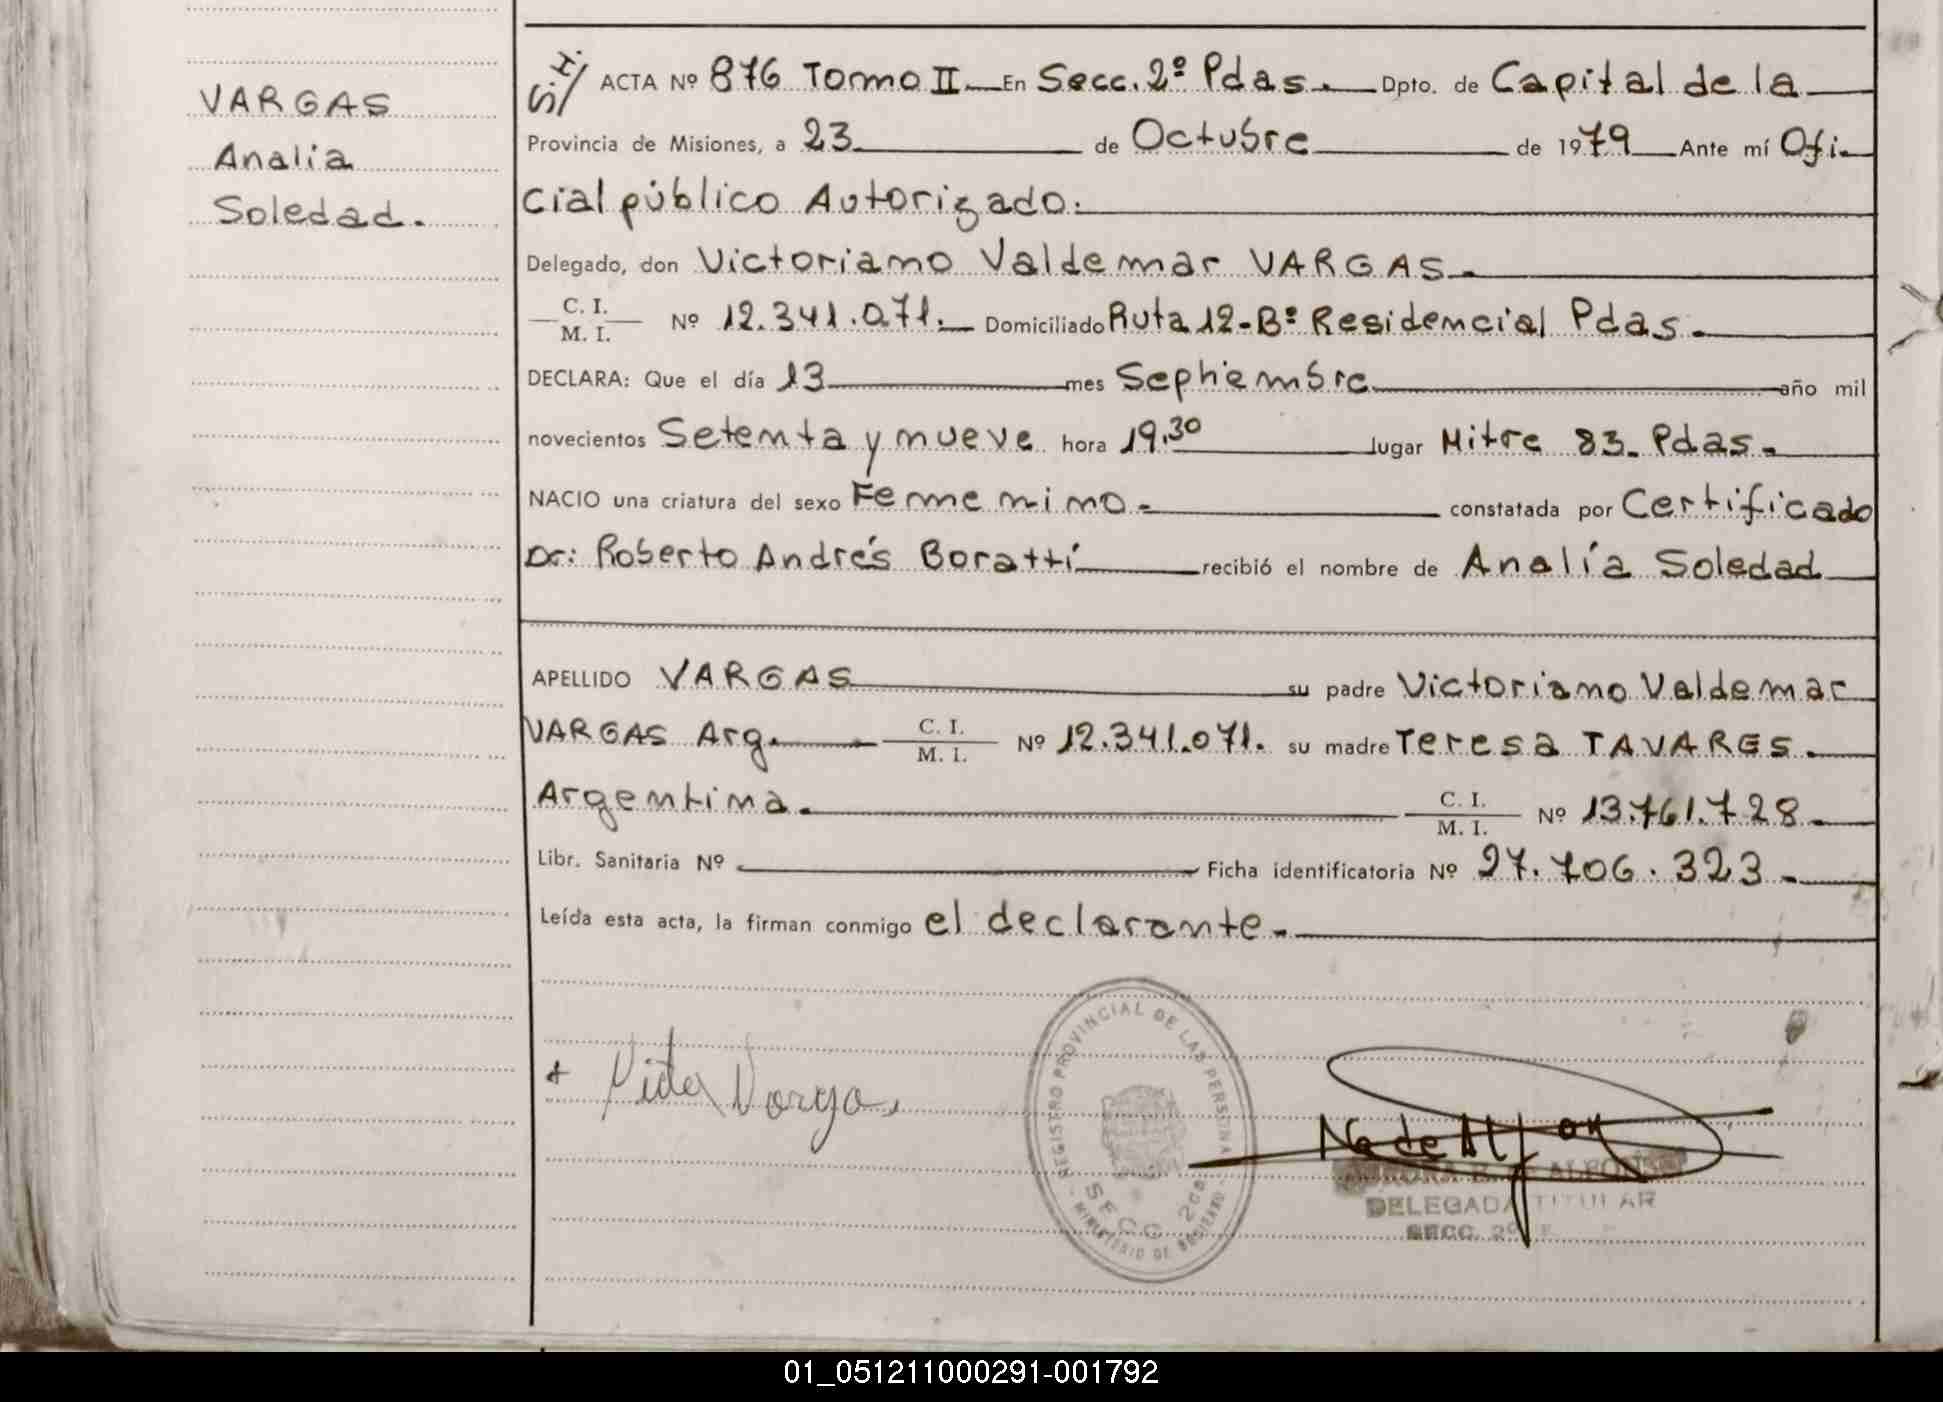 VARGAS
Analía
Soledad.
S/H/ ACTA Nº 876 Tomo II. En Secc. 2º Pdas. Dpto. de Capital de la
Provincia de Misiones, a 23 de Octubre de 1979 Ante mí Ofi-
cial público Autorizado.
Delegado, don Victoriano Valdemar VARGAS.
C. I.
M. I. Nº 12.341.071. Domiciliado Ruta 12-Bº Residencial Pdas.
DECLARA: Que el día 13 mes Septiembre año mil
novecientos Setenta y nueve hora 19.30 lugar Mitre 83. Pdas.
NACIO una criatura del sexo Femenino. constatada por Certificado
Dr: Roberto Andrés Boratti recibió el nombre de Analía Soledad
APELLIDO VARGAS su padre Victoriano Valdemar
VARGAS Arg. C. I. M. I. Nº 12.341.071. su madre Teresa TAVARES.
Argentina. C. I. M. I. Nº 13.761.728.
Libr. Sanitaria Nº Ficha identificatoria Nº 27.706.323.
Leída esta acta, la firman conmigo el declarante.
REGISTRO PROVINCIAL DE LAS PERSONAS
SECC. 2da
MINISTERIO DE GOBIERNO
DE ALFONSO
DELEGADA TITULAR
SECC. 2º
01_051211000291-001792